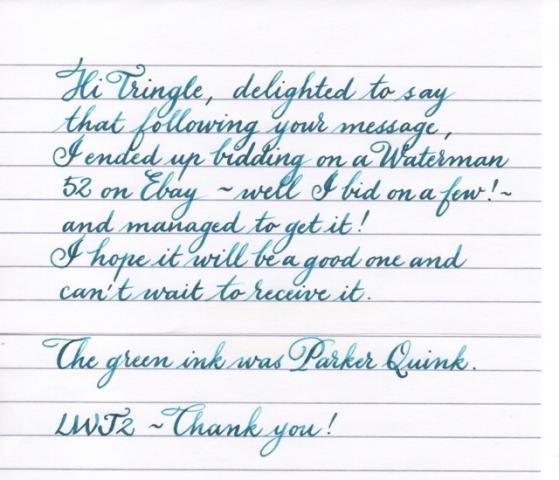 Hi Tringle, delighted to say
that following your message,
I ended up bidding on a Waterman
52 on Ebay ~ well I bid on a few! ~
and managed to get it!
I hope it will be a good one and
can't wait to receive it.
The green ink was Parker Quink.
LWT2 ~ Thank you!